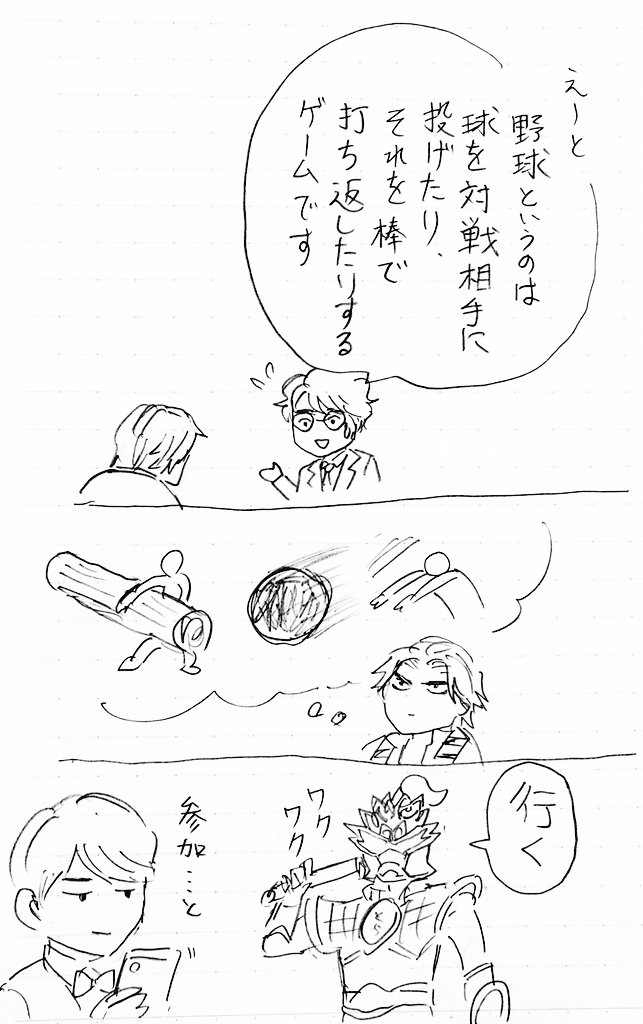 えーと
野球というのは
球を対戦相手に
投げたり、
それを棒で
打ち返したりする
ゲームです
行く
ワク
ワク
参加…と
とら